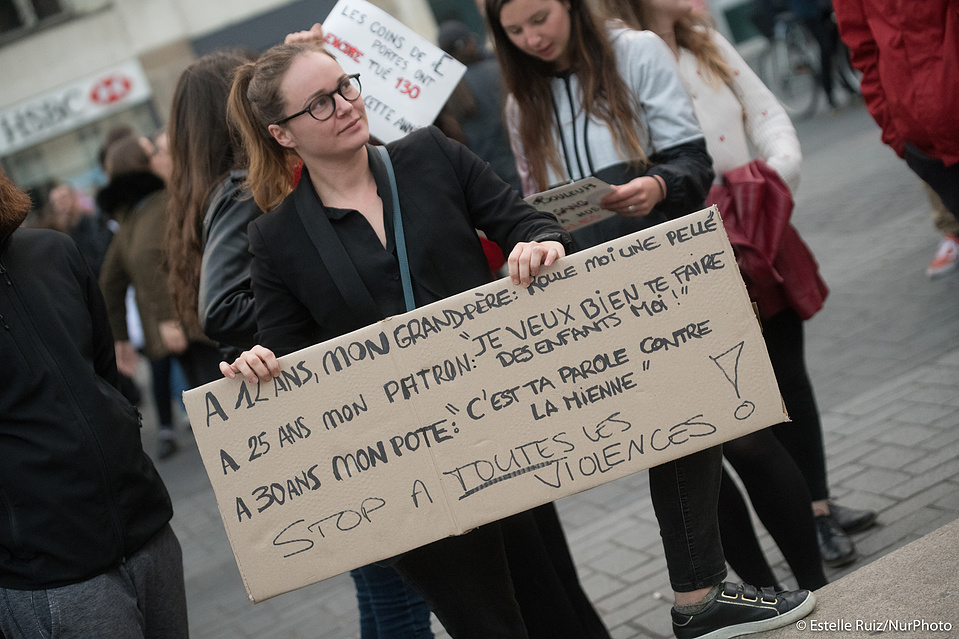 LES COINS DE
PORTES ONT
ENCORE TUÉ 130
CETTE ANNÉE
HSBC
DOULEUR
A 12 ANS, MON GRAND-PÈRE: ROULE MOI UNE PELLE
A 25 ANS MON PATRON: "JE VEUX BIEN TE FAIRE
DES ENFANTS MOI!"
A 30 ANS MON POTE: "C'EST TA PAROLE CONTRE
LA MIENNE"
STOP A TOUTES LES
VIOLENCES !
© Estelle Ruiz/NurPhoto